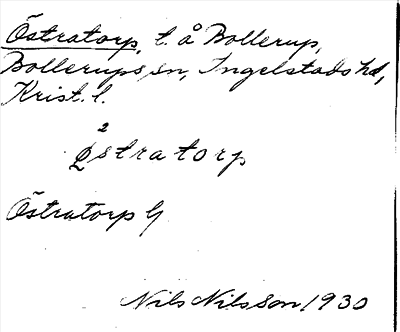 Östratorp, t. å Bollerup,
Bollerups sn, Ingelstads hd,
Krist. l.
2
östratorp
Östratorp G
Nils Nilsson 1930